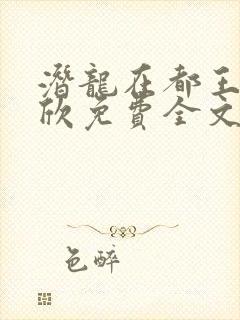 潛龍在都王
欣免費全文
色醉